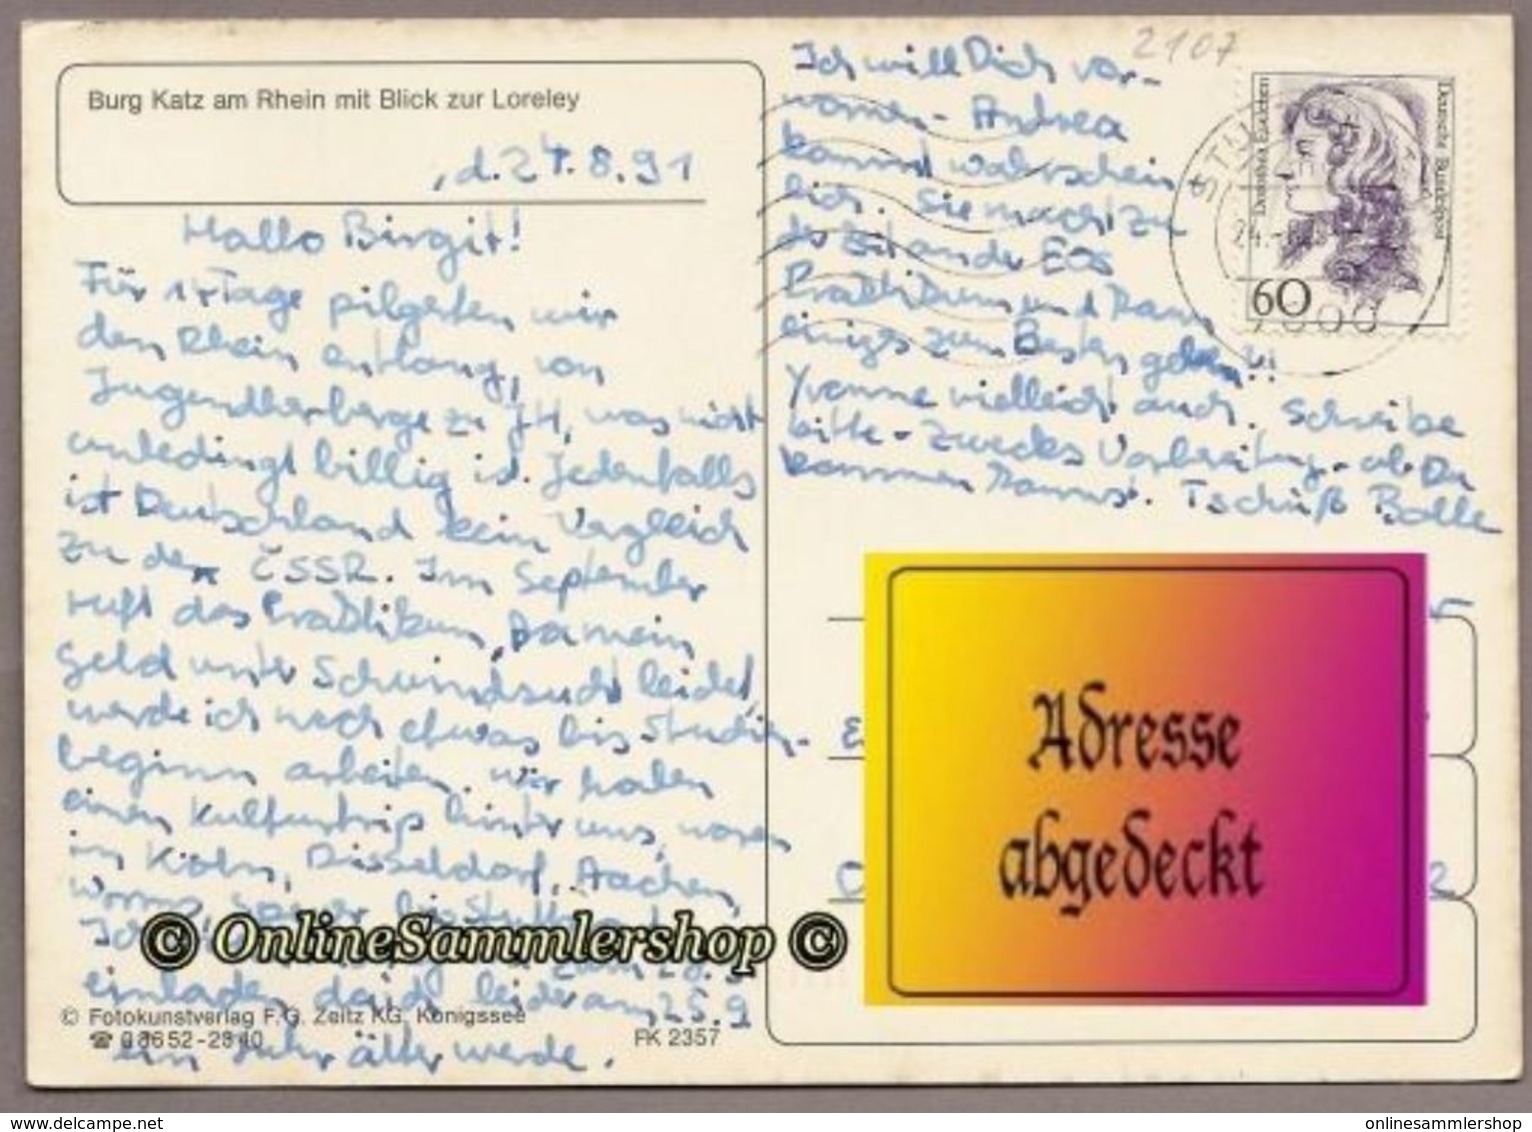 Burg Katz am Rhein mit Blick zur Loreley
, d. 24.8.91
Hallo Birgit!
Für 14 Tage pilgerten wir
den Rhein entlang, von
Jugendherberge zu JH, was nicht
unbedingt billig ist. Jedenfalls
ist Deutschland kein Vergleich
zu der ČSSR. Im September
ruft das Praktikum, da mein
Geld unter Schwindsucht leidet,
werde ich noch etwas bis Studien-
beginn arbeiten. Wir haben
einen Kulturtrip hinter uns, waren
in Köln, Düsseldorf, Aachen,
Worms, Speyer bis
Ich
einladen, da ich leider am 25.9
ein Jahr älter werde.
© Fotokunstverlag F.G. Zeitz KG, Königssee
☎ 08652-2340
FK 2357
2107
Ich will Dich vor-
warnen - Andrea
kommt wahrschein
lich. Sie macht zu
der Zeit an der EOS
Praktikum und kann
einiges zum Besten geben!!
Yvonne vielleicht auch. Schreibe
bitte - zwecks Vorbereitung - ob Du
kommen kannst. Tschüß Bolle
Dorothea Erxleben
Deutsche Bundespost
60
Adresse
abgedeckt
© OnlineSammlershop ©
www.delcampe.net
onlinesammlershop